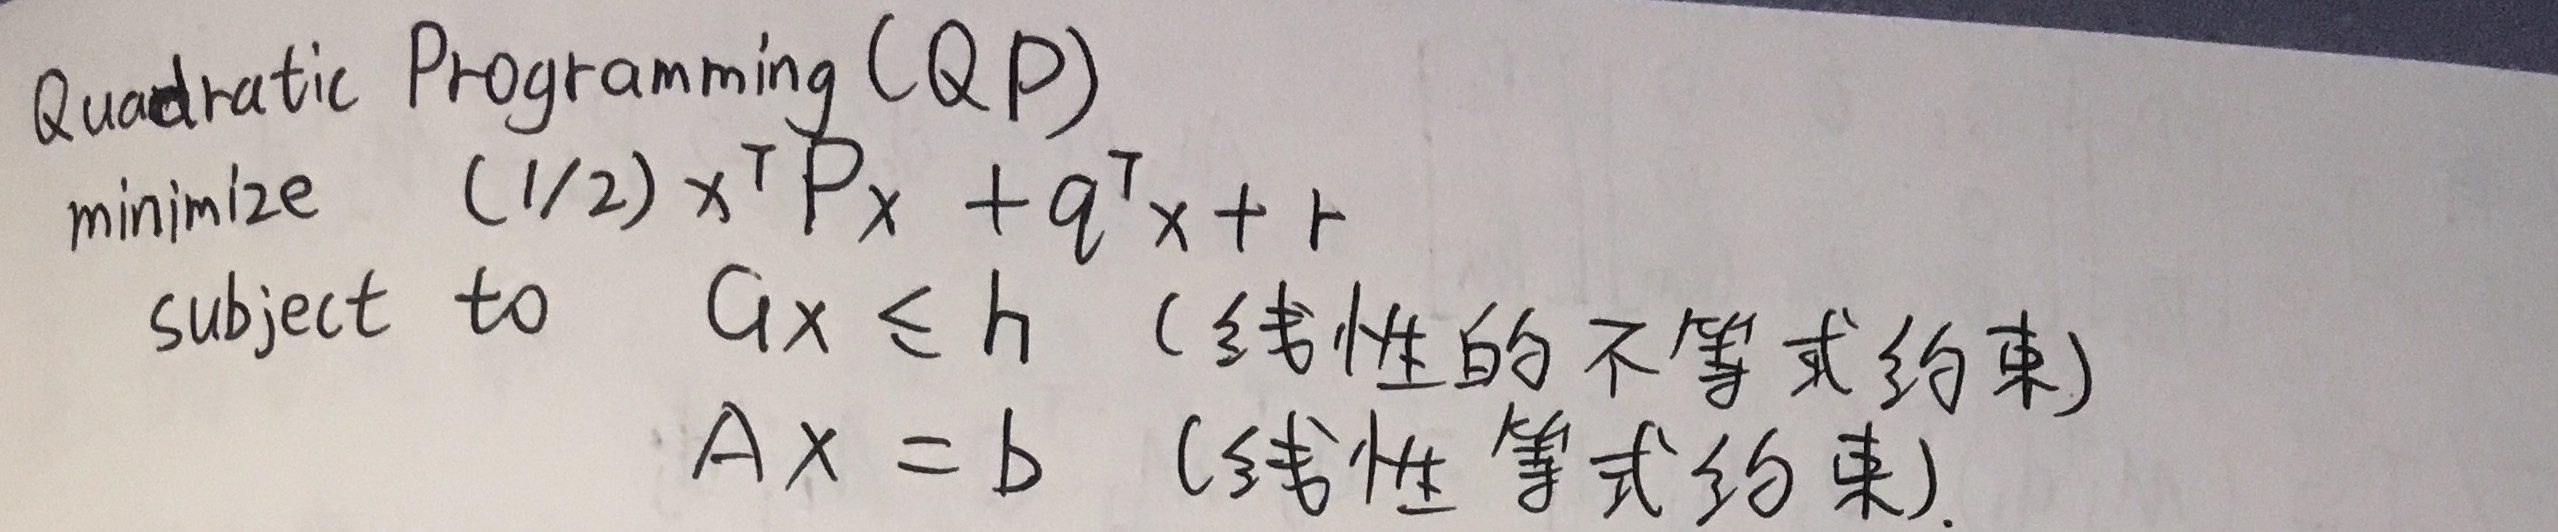 Quadratic Programming (QP)
minimize (1/2) xᵀPx + qᵀx + r
subject to Gx ≤ h (线性的不等式约束)
Ax = b (线性等式约束).